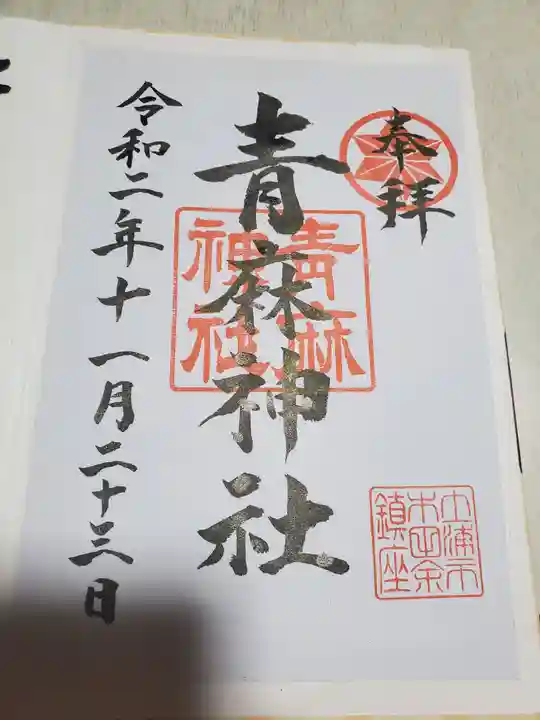 奉拝
青麻神社
青麻
神社
令和二年十一月二十三日
土浦市
木田余
鎮座